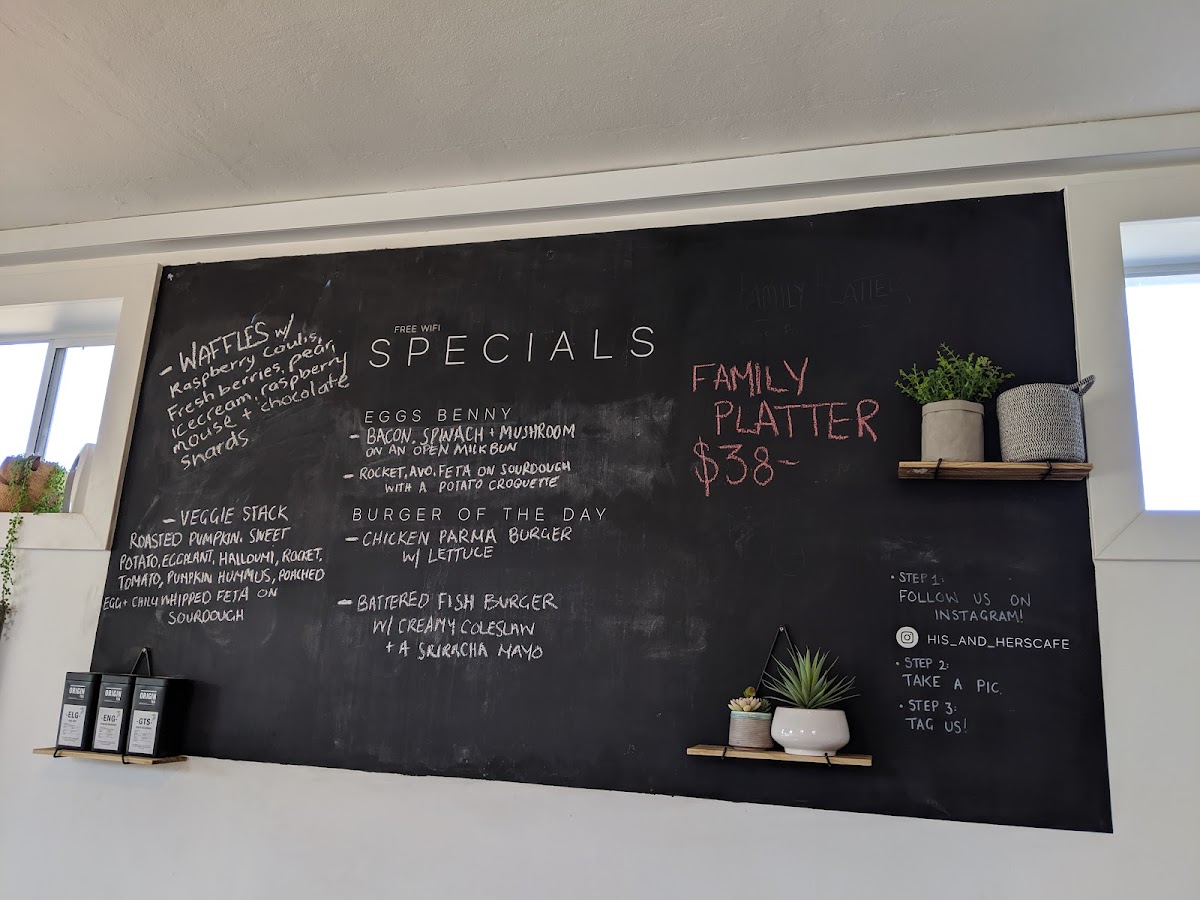 - WAFFLES w/
Raspberry Coulis,
Fresh berries, pear,
icecream, raspberry
mouse + chocolate
shards
FREE WIFI
SPECIALS
EGGS BENNY
- BACON, SPINACH + MUSHROOM
ON AN OPEN MILK BUN
- ROCKET, AVO, FETA ON SOURDOUGH
WITH A POTATO CROQUETTE
BURGER OF THE DAY
- CHICKEN PARMA BURGER
W/ LETTUCE
- BATTERED FISH BURGER
W/ CREAMY COLESLAW
+ A SRIRACHA MAYO
- VEGGIE STACK
ROASTED PUMPKIN, SWEET
POTATO, EGGPLANT, HALLOUMI, ROCKET,
TOMATO, PUMPKIN HUMMUS, POACHED
EGG + CHILLI WHIPPED FETA ON
SOURDOUGH
FAMILY PLATTER
FAMILY
PLATTER
$38-
• STEP 1:
FOLLOW US ON
INSTAGRAM!
HIS_AND_HERSCAFE
• STEP 2:
TAKE A PIC.
• STEP 3:
TAG US!
ORIGIN
-ELG-
ORIGIN
-ENG-
ORIGIN
-GTS-